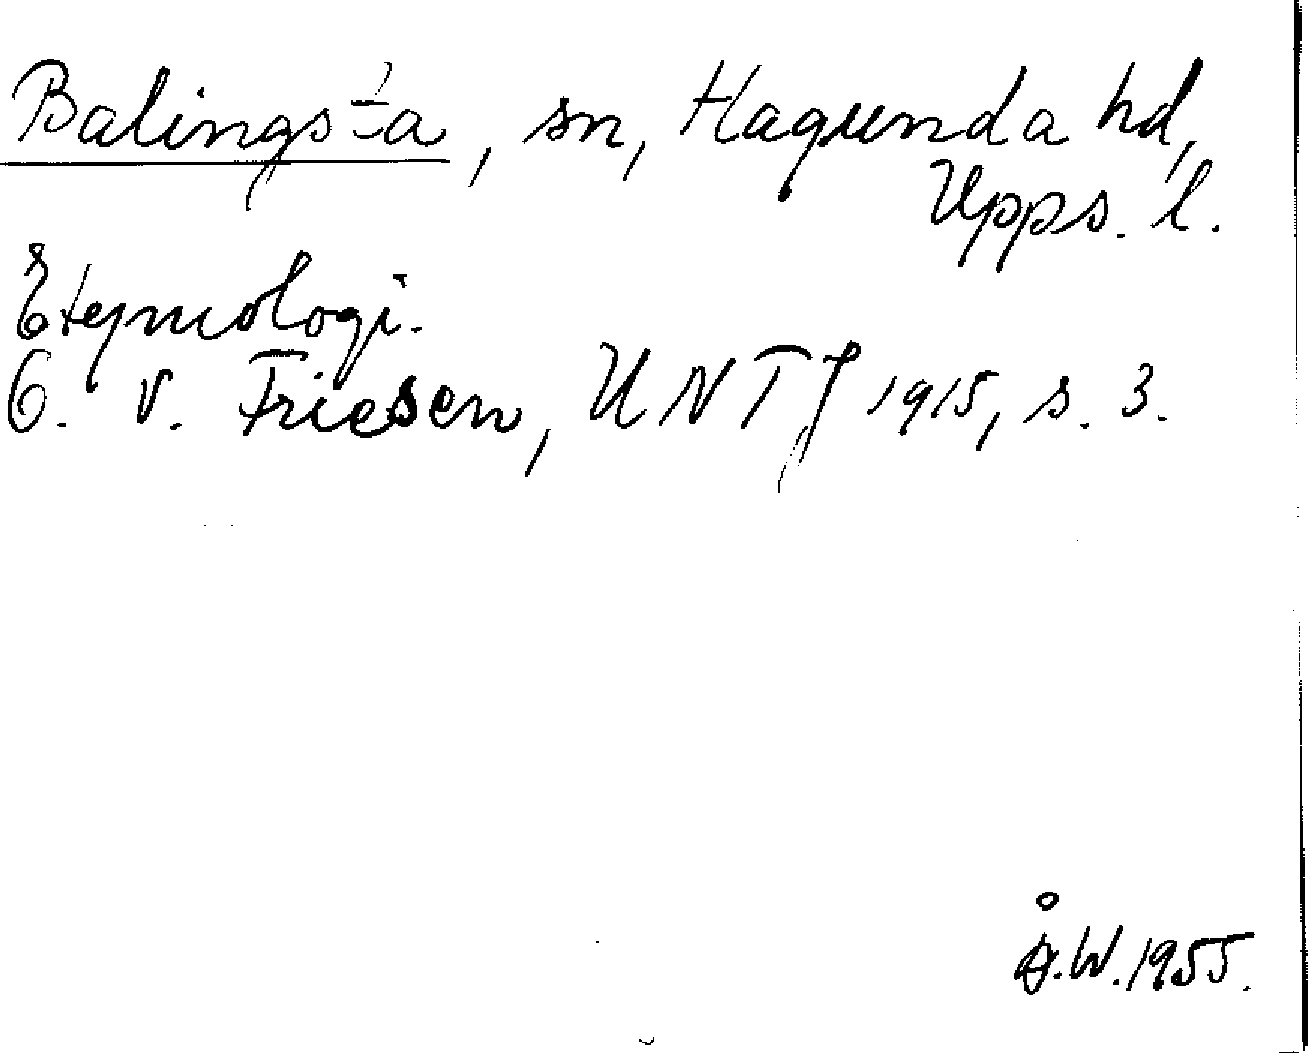 Balingsta, sn, Hagunda hd,
Upps. l.
Etymologi.
O. v. Friesen, UNTJ 1915, s. 3.
Å.W. 1955.